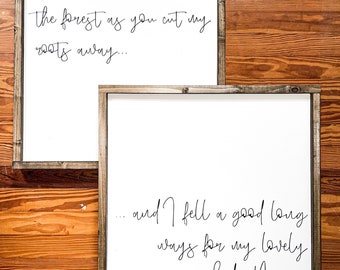 the forest as you cut my
roots away...
... and I fell a good long
ways for my lovely